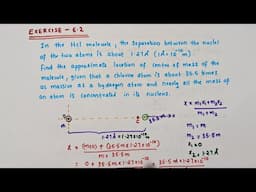 EXERCISE - 6.2
In the HCl molecule, the separation between the nuclei
of the two atoms is about 1.27Å (1Å = 10⁻¹⁰ m).
Find the approximate location of centre of mass of the
molecule, given that a chlorine atom is about 35.5 times
as massive as a hydrogen atom and nearly all the mass of
an atom is concentrated in its nucleus.
X = m₁x₁+m₂x₂
m₁+m₂
m
35.5m
1.27Å = 1.27×10⁻¹⁰m
m₁ = m
m₂ = 35.5m
x₁ = 0
X = (m×0) + (35.5m×1.27×10⁻¹⁰)
m + 35.5m
= 0 + 35.5m×1.27×10⁻¹⁰ = 35.5m×1.27×10⁻¹⁰